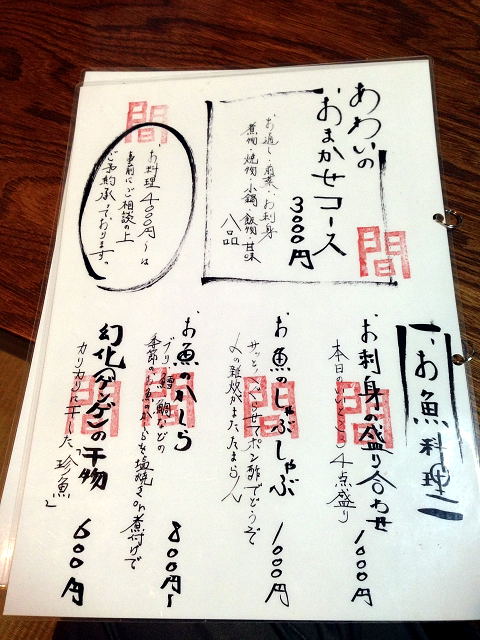 あわいの
おまかせコース
3000円
お通し・前菜・お刺身
煮物・焼物・小鍋・飯物・甘味
八品
間
間
お料理4000円〜は
事前にご相談の上
ご予約承っております。
お魚料理
お刺身の盛り合わせ 1000円
本日のいいとこ 4点盛り
間
お魚のしゃぶしゃぶ 1000円
サッとくぐらせてポン酢でどうぞ
〆の雑炊がまたたまらん
間
お魚のかしら 800円〜
ブリ、鱈、鯛などの
季節のお魚のかしらを塩焼きor煮付けで
間
幻化(ゲンゲ)の干物 600円
カリカリに干した「珍魚」
間